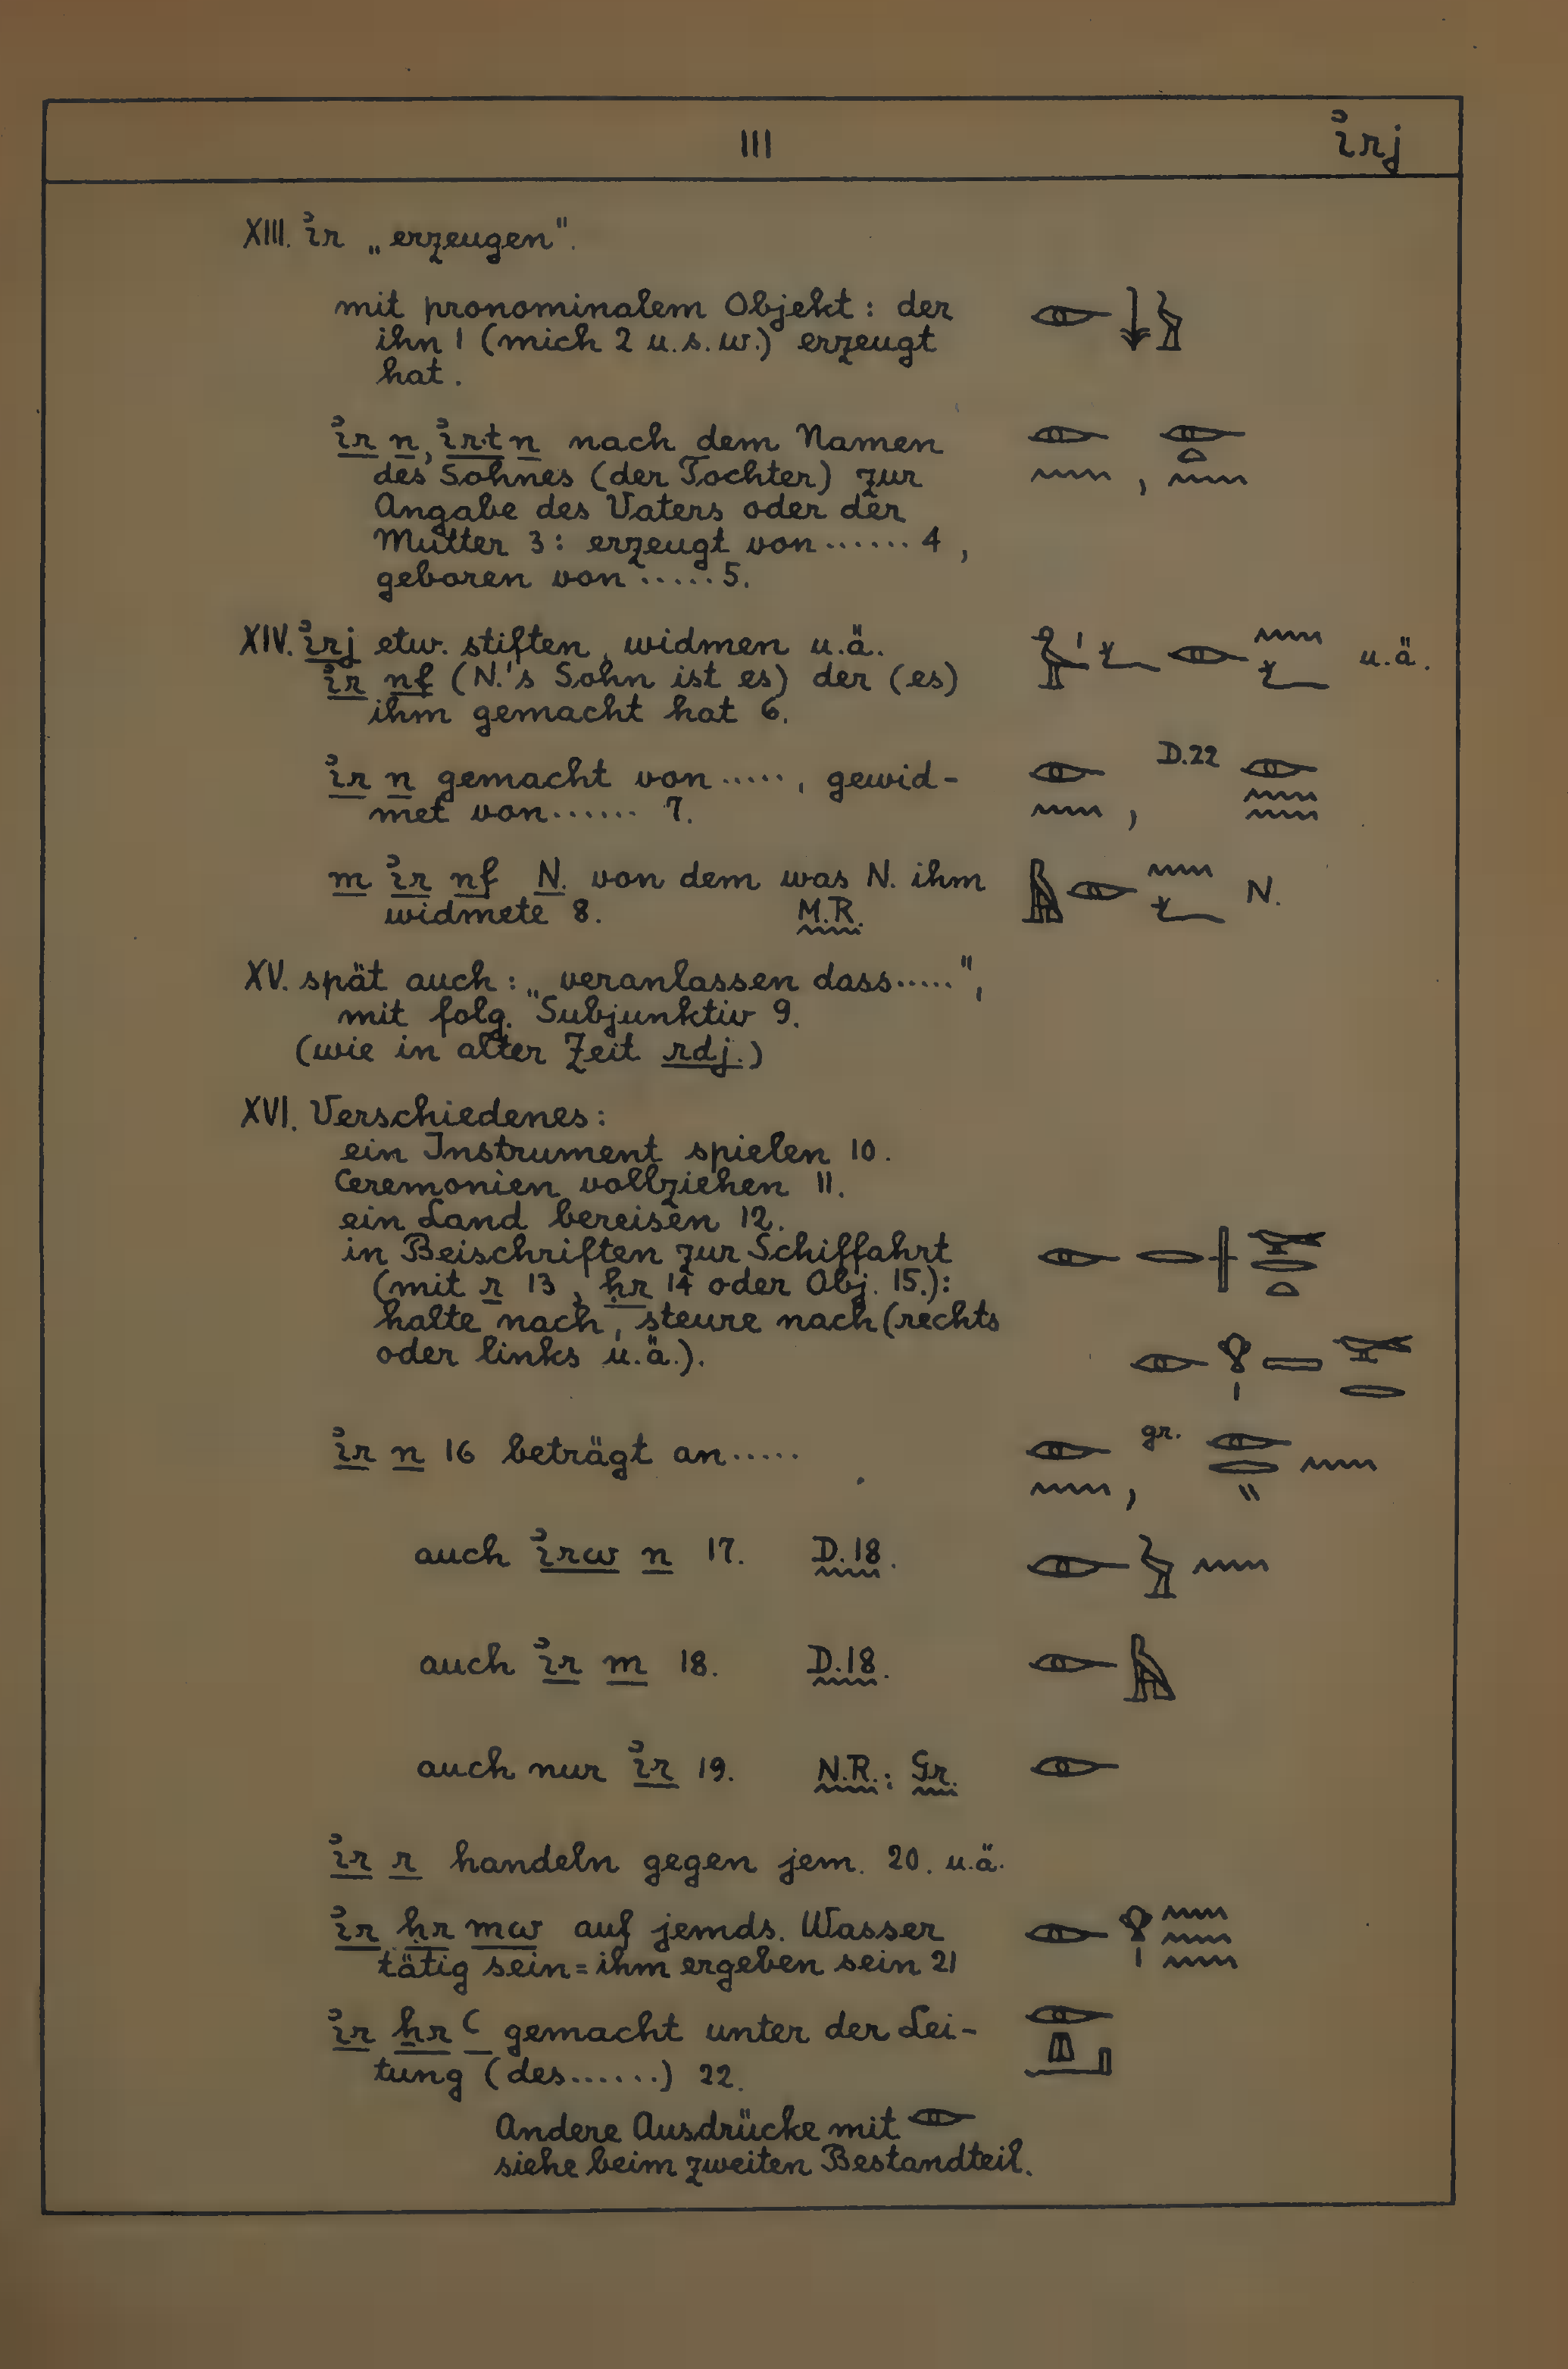 111 ꞽrj
XIII. ꞽr „erzeugen".
mit pronominalem Objekt: der
ihn 1 (mich 2 u.s.w.) erzeugt
hat.
ꞽr n, ꞽr.t n nach dem Namen
des Sohnes (der Tochter) zur
Angabe des Vaters oder der
Mutter 3: erzeugt von ...... 4,
geboren von ..... 5.
XIV. ꞽrj etw. stiften, widmen u.ä.
ꞽr nf (N.'s Sohn ist es) der (es) u.ä.
ihm gemacht hat 6.
ꞽr n gemacht von ....., gewid- D.22
met von ...... 7.
m ꞽr nf N. von dem was N. ihm N.
widmete 8. M.R.
XV. spät auch: „veranlassen dass.....",
mit folg. Subjunktiv 9.
(wie in alter Zeit rdj.)
XVI. Verschiedenes:
ein Instrument spielen 10.
Ceremonien vollziehen 11.
ein Land bereisen 12.
in Beischriften zur Schiffahrt
(mit r 13, ḥr 14 oder Obj. 15.):
halte nach, steure nach (rechts
oder links u.ä.).
ꞽr n 16 beträgt an ..... gr.
auch ꞽrw n 17. D.18.
auch ꞽr m 18. D.18.
auch nur ꞽr 19. N.R.; Gr.
ꞽr r handeln gegen jem. 20. u.ä.
ꞽr ḥr mw auf jemds. Wasser
tätig sein = ihm ergeben sein 21
ꞽr ẖr ꜥ gemacht unter der Lei-
tung (des......) 22.
Andere Ausdrücke mit 𓁹
siehe beim zweiten Bestandteil.